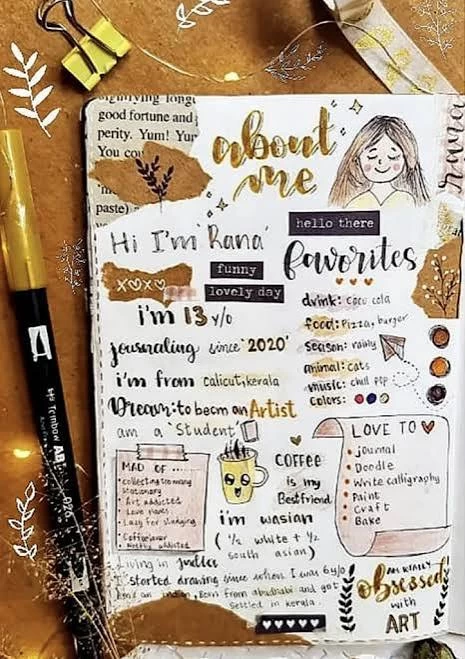 good fortune and
perity. Yum! Yum
You cou
paste)
about
me
rana
hello there
Hi I'm 'Rana'
funny
lovely day
favorites
xoxo
i'm 13 y/o
journaling since '2020'
i'm from calicut, kerala
Dream: to becom an Artist
am a 'Student'
drink: coca cola
food: Pizza, burger
Season: rainy
animal: cats
music: chill pop
colors:
MAD OF ......
collecting too many
stationary
Art addicted
Love naves
Lazy for studying
Coffeelover
Netflix addicted
COFFEE
is my
Bestfriend
i'm wasian
( ½ white + ½
south asian)
LOVE TO
journal
Doodle
Write calligraphy
Paint
Craft
Bake
Living in
I started drawing since when I was 6y/o
Born from abudhabi and got
Settled in kerala
AM REALLY
obsessed
with
ART
Tombow AB